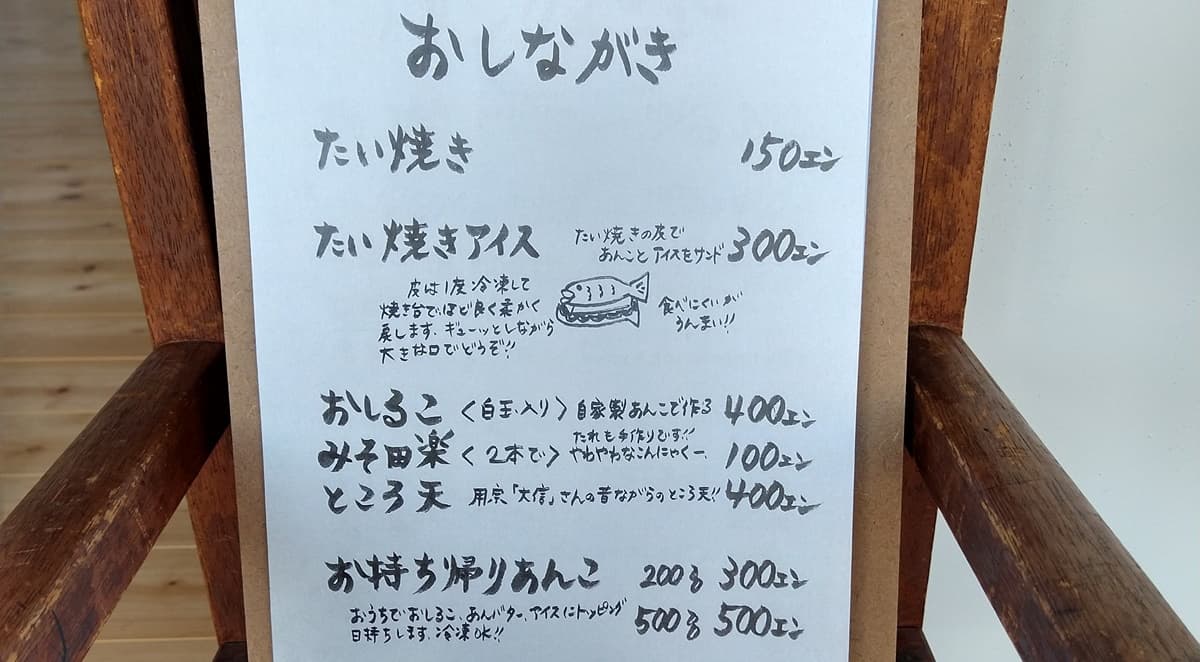 おしながき
たい焼き 150エン
たい焼きアイス たい焼きの皮で あんことアイスをサンド 300エン
皮は1度冷凍して
焼き台でほど良く柔かく
戻します。ギューッとしながら
大きな口でどうぞ!!
食べにくいが
うんまい!!
おしるこ〈白玉入り〉自家製あんこで作る 400エン
たれも手作りです!!
みそ田楽〈2本で〉やわやわなこんにゃくー。 100エン
ところ天 用宗「大信」さんの昔ながらのところ天!! 400エン
お持ち帰りあんこ 200g 300エン
おうちでおしるこ、あんバター、アイスにトッピング 500g 500エン
日持ちします。冷凍OK!!